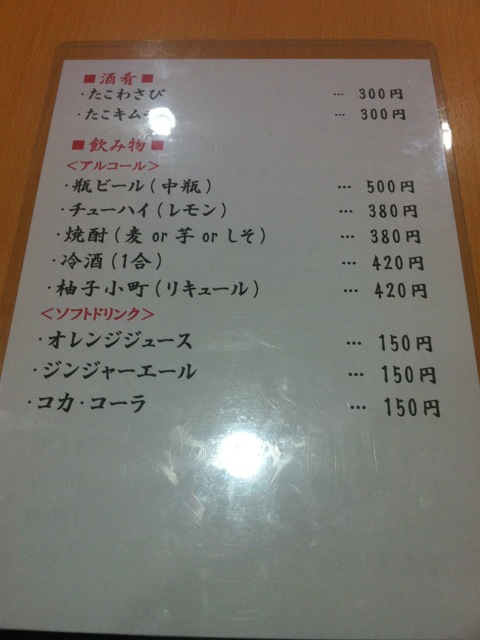 ■酒肴■
・たこわさび … 300円
・たこキム … 300円
■飲み物■
<アルコール>
・瓶ビール(中瓶) … 500円
・チューハイ(レモン) … 380円
・焼酎(麦or芋orしそ) … 380円
・冷酒(1合) … 420円
・柚子小町(リキュール) … 420円
<ソフトドリンク>
・オレンジジュース … 150円
・ジンジャーエール … 150円
・コカ・コーラ … 150円